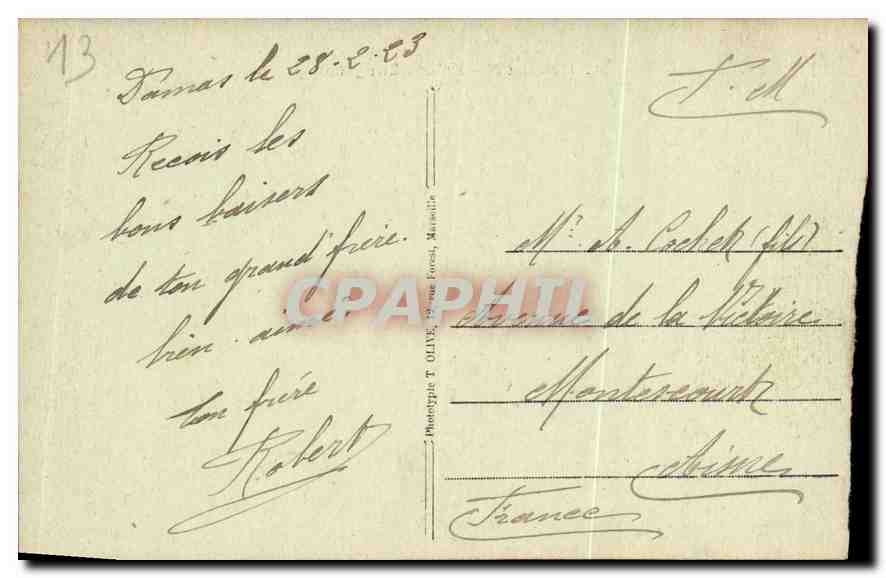 13
Damas le 28-2-23
Recois les
bons baisers
de ton grand frère
bien aimé
ton frère
Robert
Phototypie T. OLIVE, rue Foresi, Marseille
F. M
Mr. A. Cochet (fils)
Avenue de la Victoire
Montescourt
Aisne
France
CPAPHIL